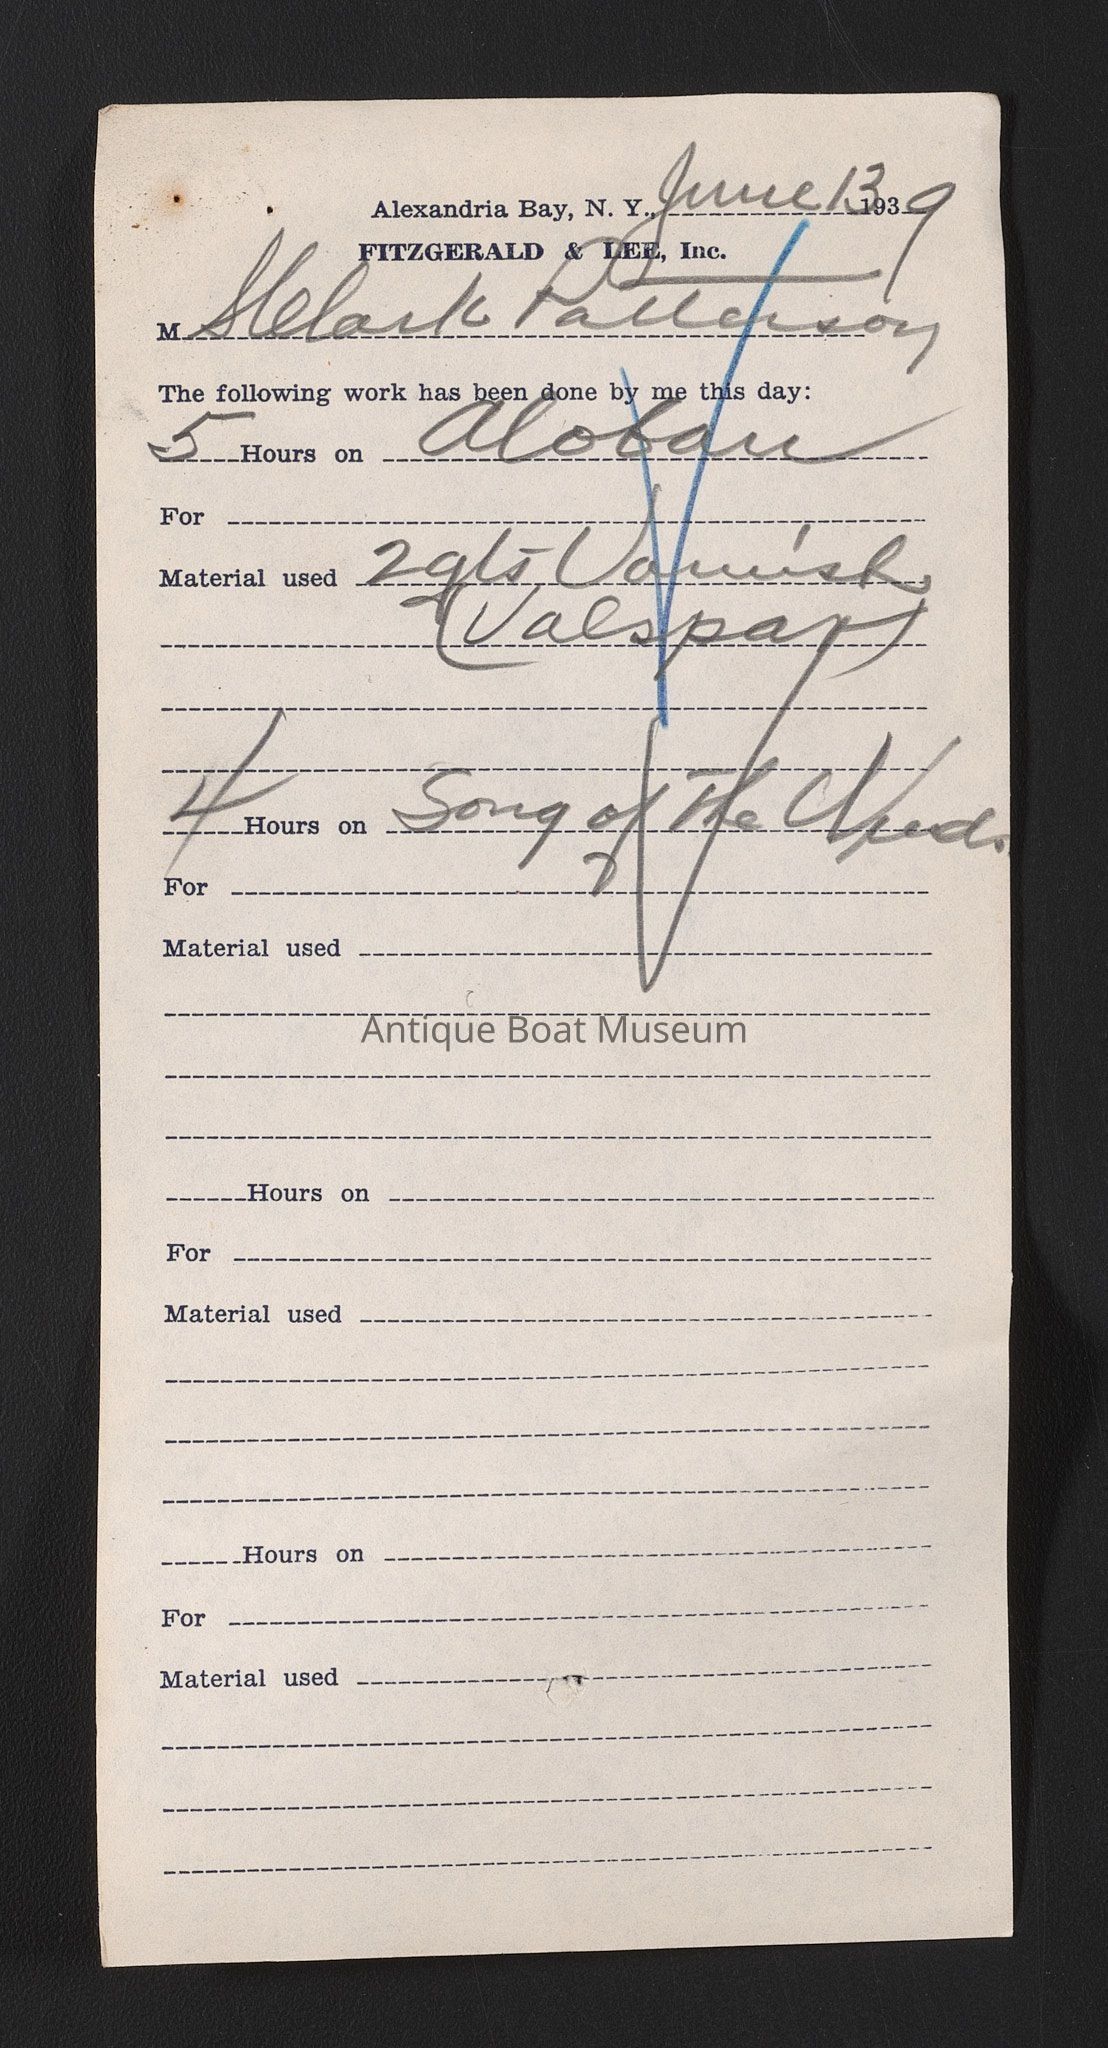 Alexandria Bay, N. Y., June 13 1939
FITZGERALD & LEE, Inc.
M Clark Patterson
The following work has been done by me this day:
5 Hours on Aloban
For
Material used 2 qts Varnish
(Valspar)
4 Hours on Song of The Winds.
For
Material used
Antique Boat Museum
Hours on
For
Material used
Hours on
For
Material used